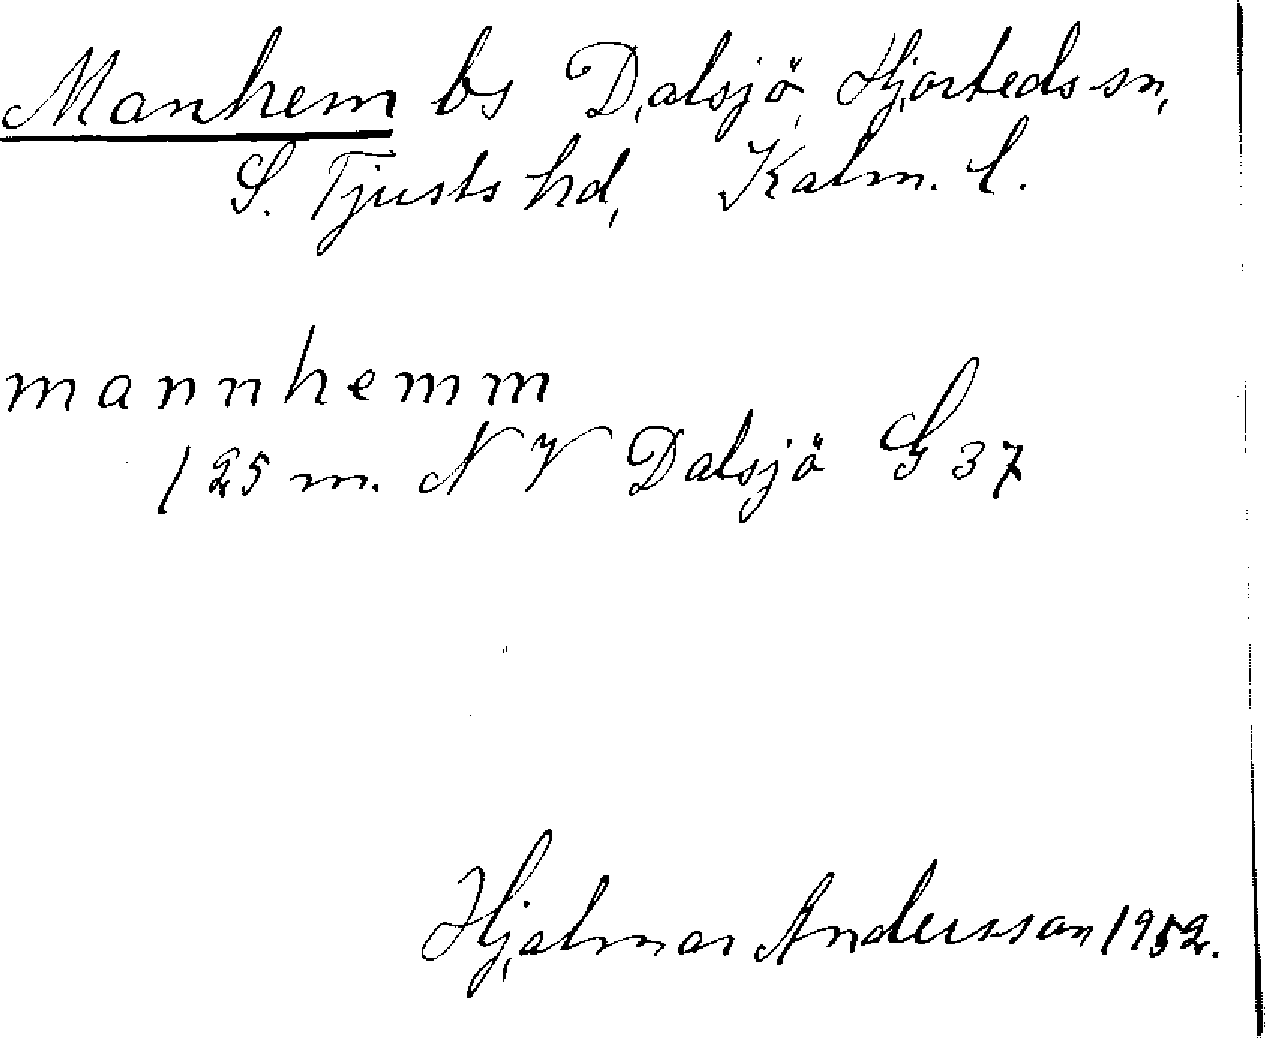 Manhem bs Dalsjö, Hjorteds sn,
S. Tjusts hd, Kalm. l.
mannhemm
125 m. NV Dalsjö G 37
Hjalmar Andersson 1952.